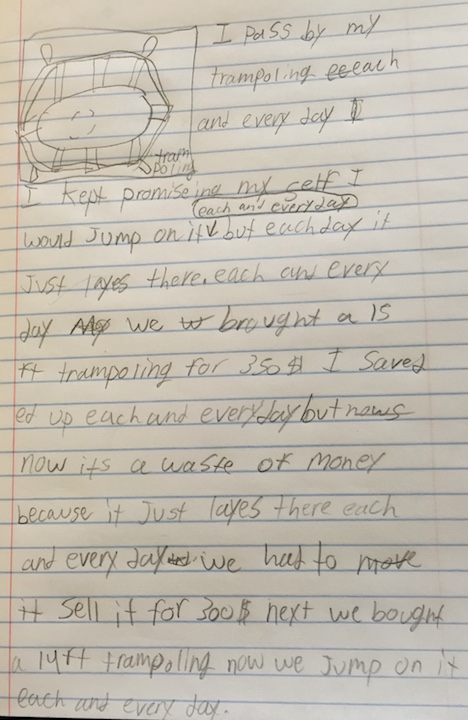 I pass by my
trampoling each
and every day
tram
poling
I kept promiseing my self I
each and everyday
would Jump on it but each day it
Just layes there. each and every
day we brought a 15
ft trampoling for 350$ I Saved
ed up each and everyday but nows
now its a waste of money
because it Just layes there each
and every day. we had to move
it Sell it for 300$ next we bought
a 14ft trampoling now we Jump on it
each and every day.